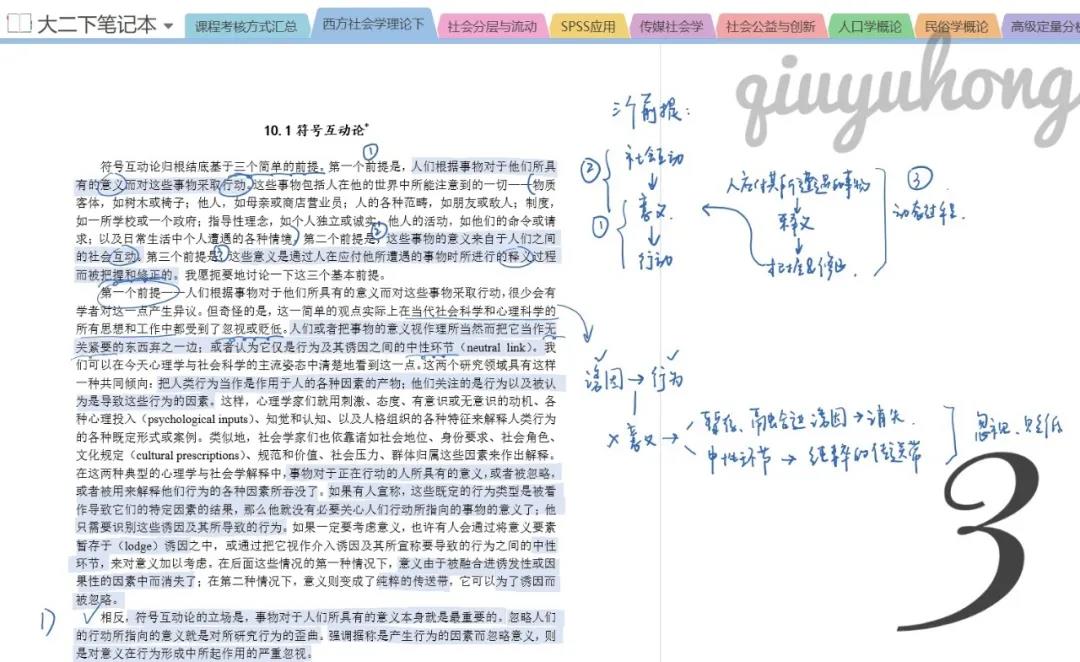 大二下笔记本
课程考核方式汇总
西方社会学理论下
社会分层与流动
SPSS应用
传媒社会学
社会公益与创新
人口学概论
民俗学概论
高级定量分析
qiuyuhong
10.1 符号互动论*
符号互动论归根结底基于三个简单的前提。第一个前提是，人们根据事物对于他们所具
有的意义而对这些事物采取行动。这些事物包括人在他的世界中所能注意到的一切——物质
客体，如树木或椅子；他人，如母亲或商店营业员；人的各种范畴，如朋友或敌人；制度，
如一所学校或一个政府；指导性理念，如个人独立或诚实；他人的活动，如他们的命令或请
求；以及日常生活中个人遭遇的各种情境。第二个前提是，这些事物的意义来自于人们之间
的社会互动。第三个前提是，这些意义是通过人在应付他所遭遇的事物时所进行的释义过程
而被把握和修正的。我愿扼要地讨论一下这三个基本前提。
第一个前提——人们根据事物对于他们所具有的意义而对这些事物采取行动，很少会有
学者对这一点产生异议。但奇怪的是，这一简单的观点实际上在当代社会科学和心理科学的
所有思想和工作中都受到了忽视或贬低。人们或者把事物的意义视作理所当然而把它当作无
关紧要的东西弃之一边；或者认为它仅是行为及其诱因之间的中性环节（neutral link）。我
们可以在今天心理学与社会科学的主流姿态中清楚地看到这一点。这两个研究领域具有这样
一种共同倾向：把人类行为当作是作用于人的各种因素的产物；他们关注的是行为以及被认
为是导致这些行为的因素。这样，心理学家们就用刺激、态度、有意识或无意识的动机、各
种心理投入（psychological inputs）、知觉和认知、以及人格组织的各种特征来解释人类行为
的各种既定形式或案例。类似地，社会学家们也依靠诸如社会地位、身份要求、社会角色、
文化规定（cultural prescriptions）、规范和价值、社会压力、群体归属这些因素来作出解释。
在这两种典型的心理学与社会学解释中，事物对于正在行动的人所具有的意义，或者被忽略，
或者被用来解释他们行为的各种因素所吞没了。如果有人宣称，这些既定的行为类型是被看
作导致它们的特定因素的结果，那么他就没有必要关心人们行动所指向的事物的意义了；他
只需要识别这些诱因及其所导致的行为。如果一定要考虑意义，也许有人会通过将意义要素
暂存于（lodge）诱因之中，或通过把它视作介入诱因及其所宣称要导致的行为之间的中性
环节，来对意义加以考虑。在后面这些情况的第一种情况下，意义由于被融合进诱发性或因
果性的因素中而消失了；在第二种情况下，意义则变成了纯粹的传送带，它可以为了诱因而
被忽略。
相反，符号互动论的立场是，事物对于人们所具有的意义本身就是最重要的。忽略人们
的行动所指向的意义就是对所研究行为的歪曲。强调据称是产生行为的因素而忽略意义，则
是对意义在行为形成中所起作用的严重忽视。
1)
①
②
③
三个前提：
② 社会互动
① 意义
行动
人应付其所遭遇的事物
释义
把握修正
③
动态过程
诱因→行为
×意义→
暂存、融合进诱因→消失
中性环节→纯粹的传送带
忽视、贬低
3